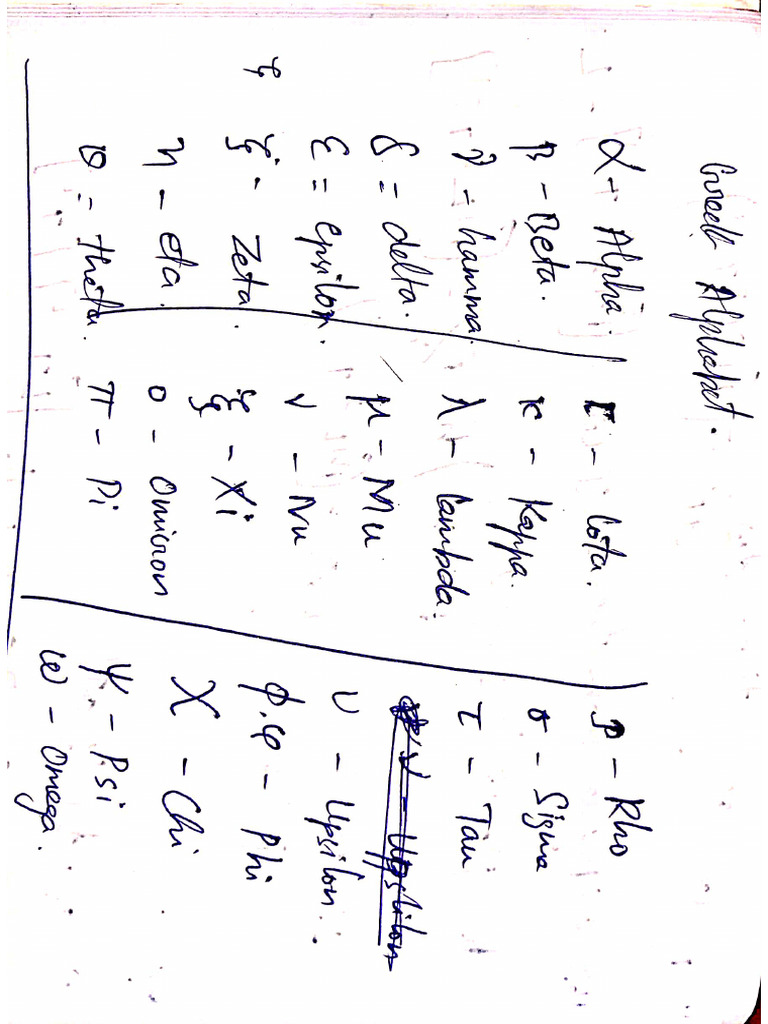 Greek Alphabet.
α - Alpha.
β - Beta.
γ - hamma.
δ = delta.
ε = epsilon.
ξ - Zeta.
η - eta.
θ = theta.
ξ
- iota.
κ - Kappa.
λ - lambda.
μ - Mu
ν - Nu
ξ - Xi
ο - Omicron
π - Pi
ρ - Rho
σ - Sigma
τ - Tau
υ - Upsilon.
φ.φ - Phi
χ - Chi
ψ - Psi
ω - Omega.